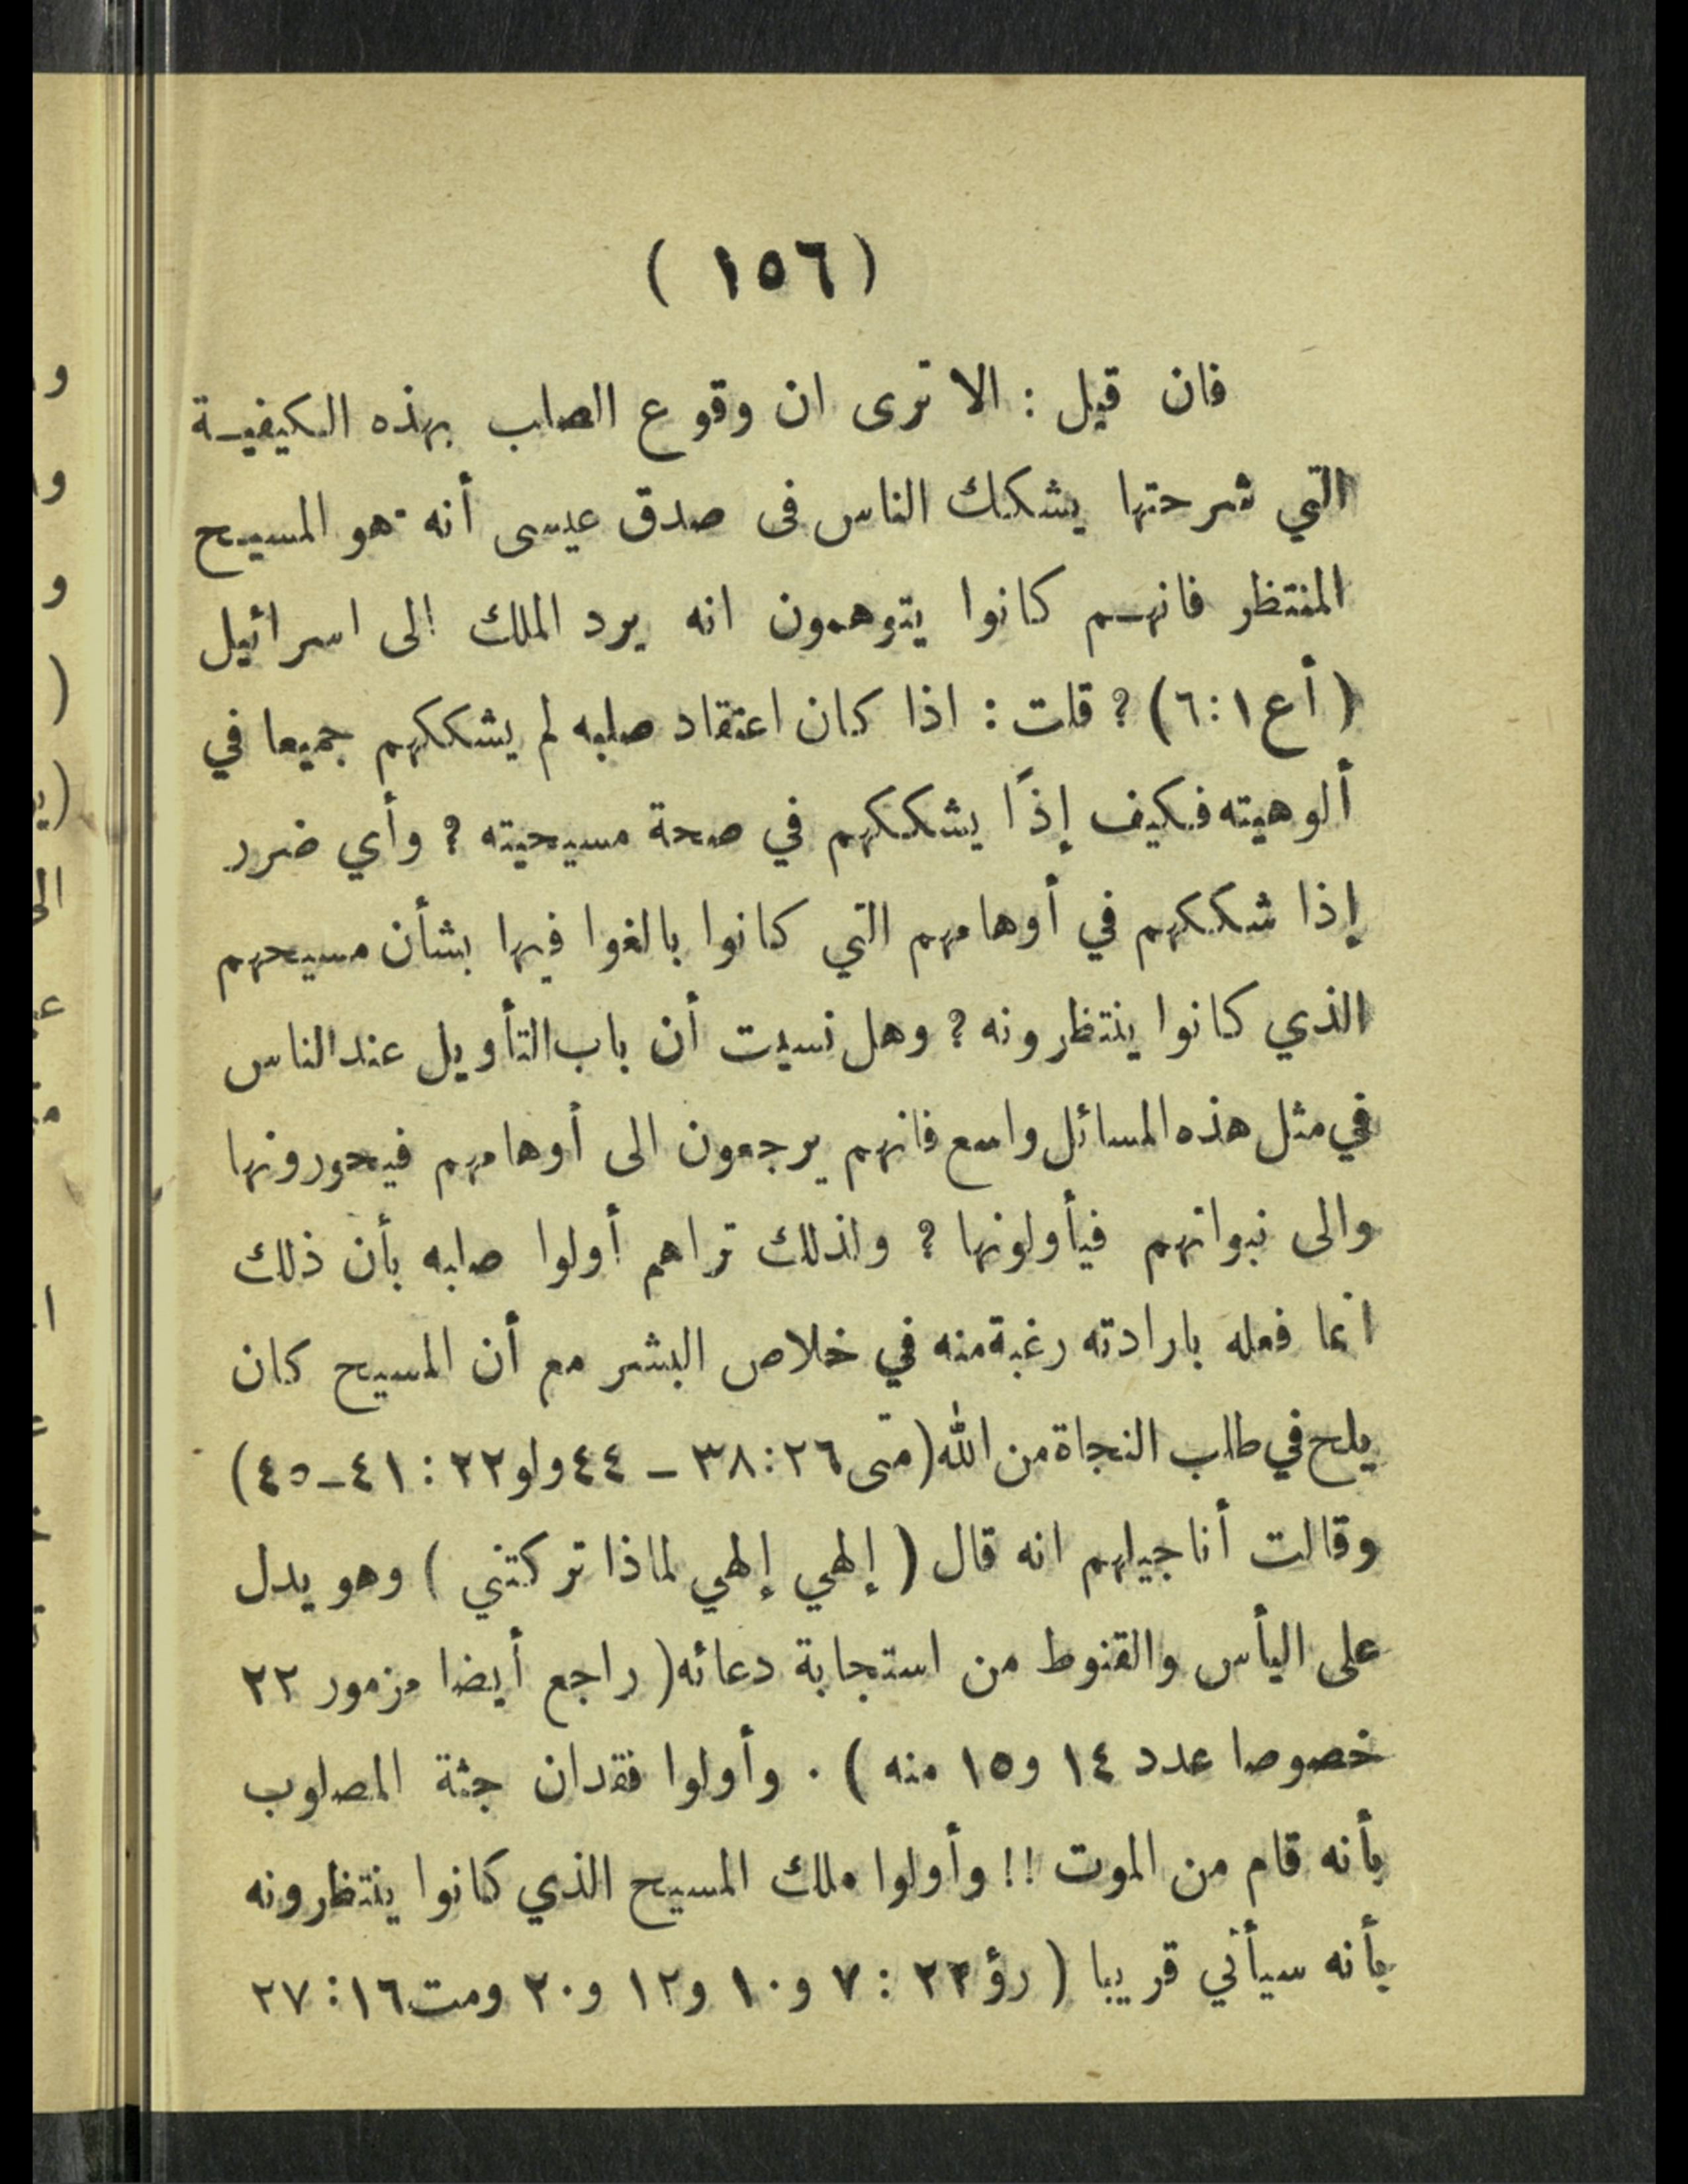 ( ١٥٦ )
فان قيل : الا ترى ان وقوع الصلب بهذه الكيفية
التي شرحتها يشكك الناس فى صدق عيسى أنه هو المسيح
المنتظر فانهم كانوا يتوهمون انه يرد الملك الى اسرائيل
( أع ١ : ٦ ) ؟ قلت : اذا كان اعتقاد صلبه لم يشككهم جميعا في
ألوهيته فكيف إذًا يشككهم في صحة مسيحيته ؟ وأي ضرر
إذا شككهم في أوهامهم التي كانوا بالغوا فيها بشأن مسيحهم
الذي كانوا ينتظرونه ؟ وهل نسيت أن باب التأويل عند الناس
في مثل هذه المسائل واسع فانهم يرجعون الى أوهامهم فيحورونها
والى نبواتهم فيأولونها ؟ ولذلك تراهم أولوا صلبه بأن ذلك
انما فعله بارادته رغبة منه في خلاص البشر مع أن المسيح كان
يلح في طلب النجاة من الله ( متى ٢٦ : ٣٨ ــ ٤٤ ولو ٢٢ : ٤١ــ٤٥ )
وقالت أناجيلهم انه قال ( إلهي إلهي لماذا تركتني ) وهو يدل
على اليأس والقنوط من استجابة دعائه ( راجع أيضا مزمور ٢٢
خصوصا عدد ١٤ و١٥ منه ) . وأولوا فقدان جثة المصلوب
بأنه قام من الموت !! وأولوا ملك المسيح الذي كانوا ينتظرونه
بأنه سيأتي قريبا ( رؤ ٢٢ : ٧ و١٠ و١٢ و٢٠ ومت ١٦ : ٢٧